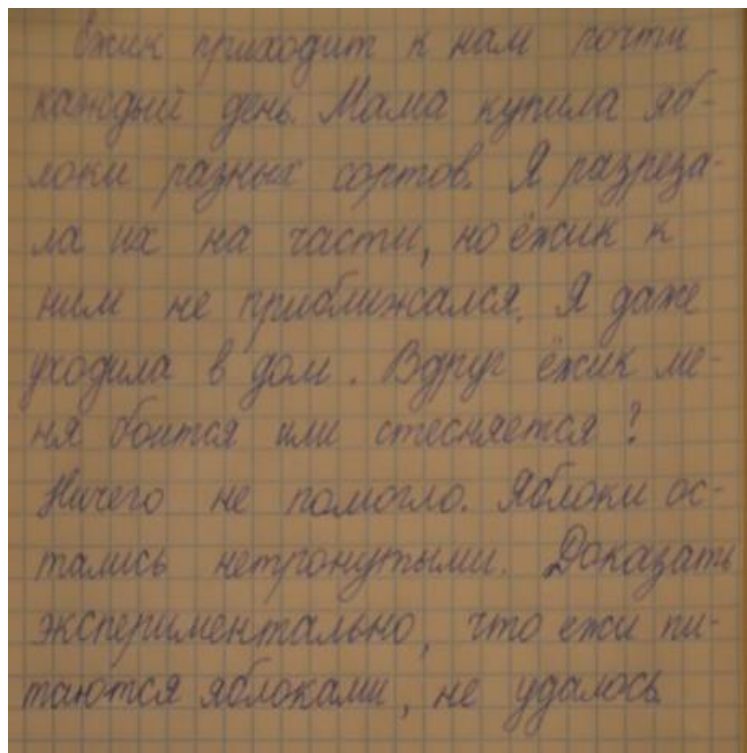 Ёжик приходит к нам почти
каждый день. Мама купила яб-
локи разных сортов. Я разреза-
ла их на части, но ёжик к
ним не приближался. Я даже
уходила в дом. Вдруг ёжик ме-
ня боится или стесняется?
Ничего не помогло. Яблоки ос-
тались нетронутыми. Доказать
экспериментально, что ежи пи-
таются яблоками, не удалось.